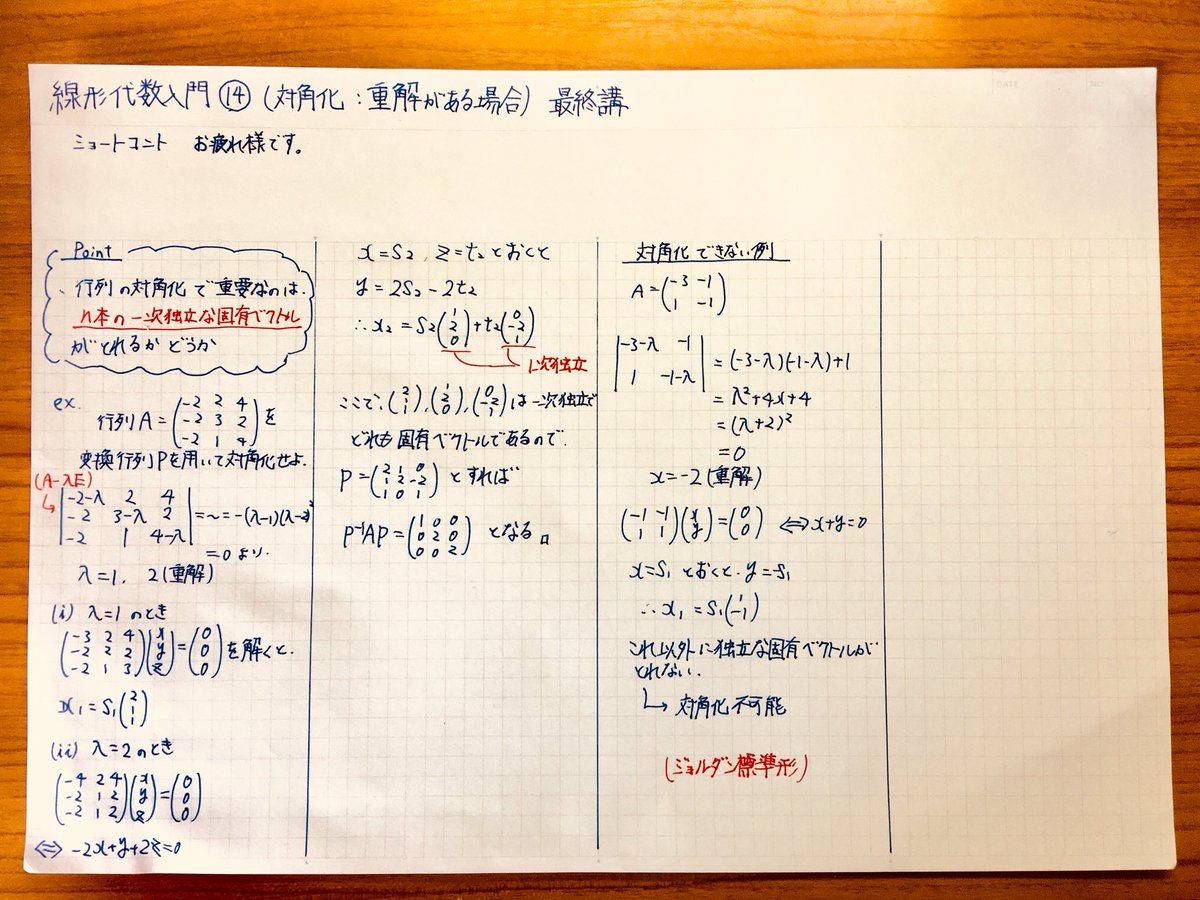 線形代数入門⑭(対角化:重解がある場合) 最終講
ショートコント お疲れ様です。
Point
、行列の対角化で重要なのは、
n本の一次独立な固有ベクトル
がとれるかどうか
ex.
行列A=(-2 2 4
-2 3 2
-2 1 4)を
変換行列Pを用いて対角化せよ.
(A-λE)
|-2-λ 2 4
-2 3-λ 2
-2 1 4-λ|=~=-(λ-1)(λ-2)²
=0より.
λ=1, 2(重解)
(i) λ=1のとき
(-3 2 4
-2 2 2
-2 1 3)(x
y
z)=(0
0
0)を解くと.
x₁=S₁(2
1
1)
(ii) λ=2のとき
(-4 2 4
-2 1 2
-2 1 2)(x
y
z)=(0
0
0)
⇔ -2x+y+2z=0
x=S₂, z=t₂とおくと
y=2S₂-2t₂
∴x₂=S₂(1
2
0)+t₂(0
-2
1)
1次独立
ここで、(2
1
1),(1
2
0),(0
-2
1)は一次独立で
どれも固有ベクトルであるので.
P=(2 1 0
1 2 -2
1 0 1)とすれば
P⁻¹AP=(1 0 0
0 2 0
0 0 2)となる□
対角化できない例
A=(-3 -1
1 -1)
|-3-λ -1
1 -1-λ|=(-3-λ)(-1-λ)+1
=λ²+4x+4
=(λ+2)²
=0
x=-2(重解)
(-1 -1
1 1)(x
y)=(0
0) ⇔x+y=0
x=S₁とおくと.y=S₁
∴x₁=S₁(1
-1)
これ以外に独立な固有ベクトルが
とれない.
↳ 対角化不可能
(ジョルダン標準形)